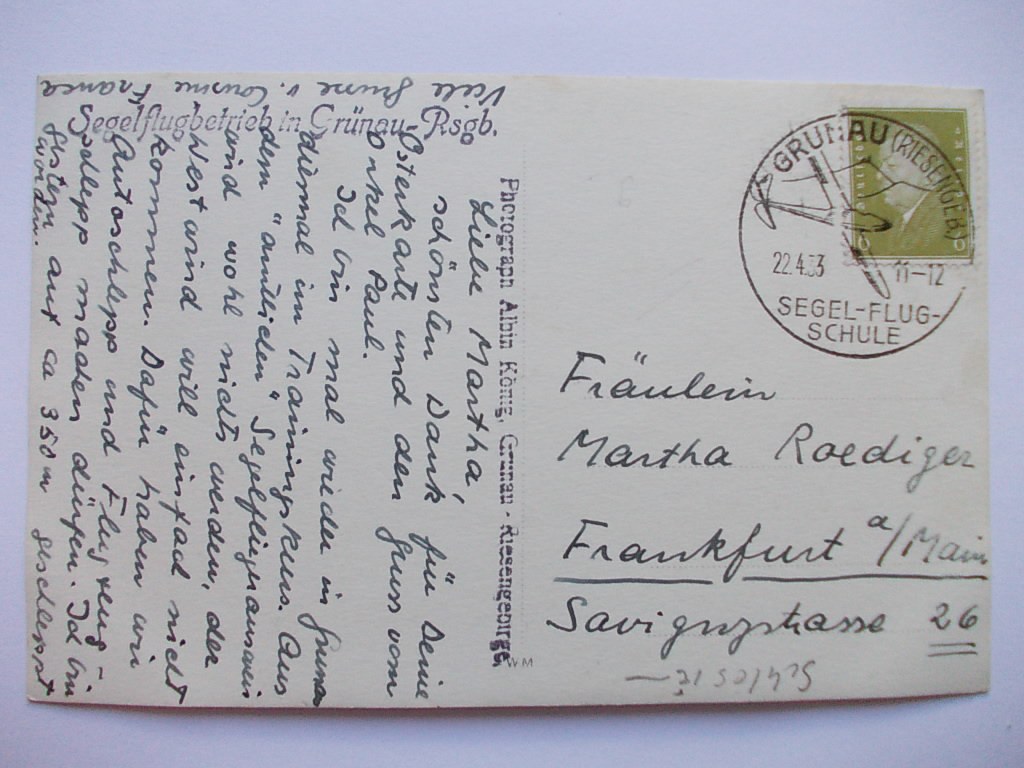 Segelflugbetrieb in Grünau-Rsgb.
Liebe Martha,
schönsten Dank für Deine
Osterkarte und den Gruss vom
Onkel Paul.
Ich bin mal wieder in Grunau
diesmal im Trainingskurs. Aus
dem "amtlichen" Segelflugausweis
wird wohl nichts werden, der
Westwind will einfach nicht
kommen. Dafür haben wir
Autoschlepp und Flugzeug-
schlepp machen dürfen. Ich bin
gestern auf ca 350 m geschleppt
worden.
Viele Grüsse v. Cousine
Franca
Photograph Albin König, Grunau - Riesengebirge
WM
GRUNAU (RIESENGEB.)
22.4.33 11-12
SEGEL-FLUG-
SCHULE
Fräulein
Martha Roediger
Frankfurt a/Main
Savignystrasse 26